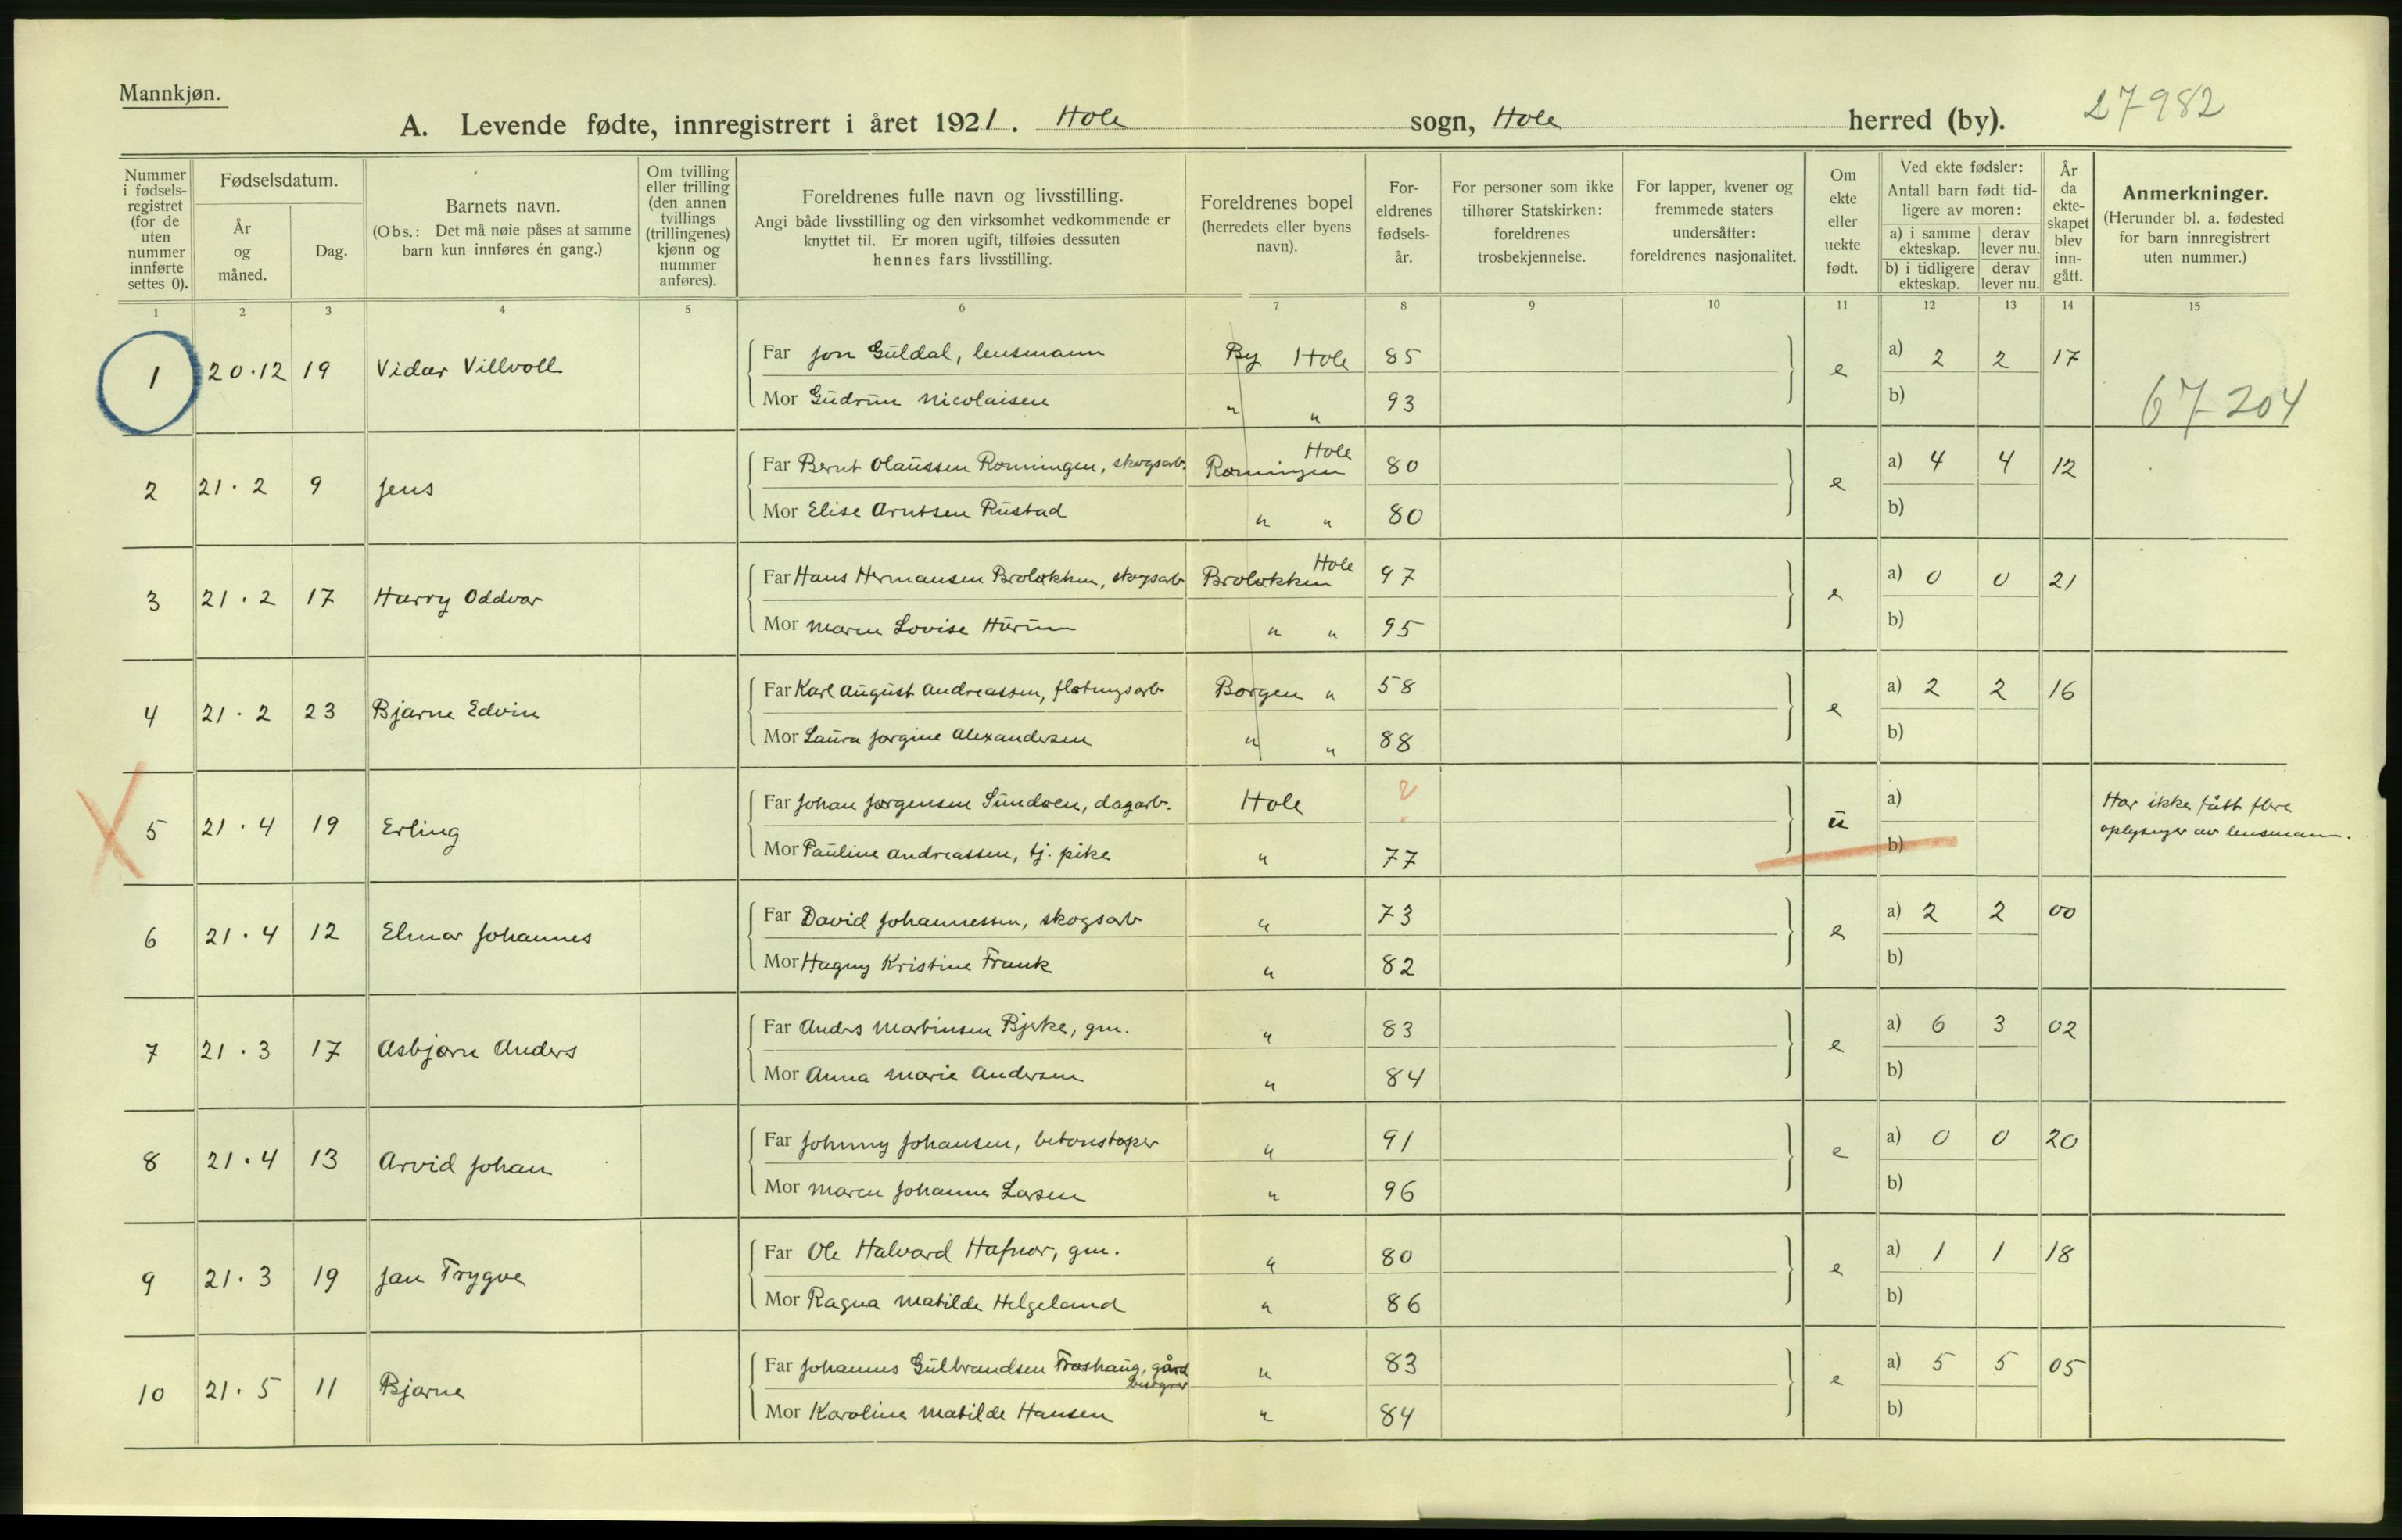 Mannkjøn.
A. Levende fødte, innregistrert i året 1921. Hole sogn, Hole herred (by). 27982
Nummer i fødsels-registret (for de uten nummer innførte settes 0).
Fødselsdatum.
År og måned.
Dag.
Barnets navn.
(Obs.: Det må nøie påses at samme barn kun innføres én gang.)
Om tvilling eller trilling (den annen tvillings (trillingenes) kjønn og nummer anføres).
Foreldrenes fulle navn og livsstilling.
Angi både livsstilling og den virksomhet vedkommende er knyttet til. Er moren ugift, tilføies dessuten hennes fars livsstilling.
Foreldrenes bopel (herredets eller byens navn).
For-eldrenes fødsels-år.
For personer som ikke tilhører Statskirken: foreldrenes trosbekjennelse.
For lapper, kvener og fremmede staters undersåtter: foreldrenes nasjonalitet.
Om ekte eller uekte født.
Ved ekte fødsler: Antall barn født tid-ligere av moren:
a) i samme ekteskap. derav lever nu.
b) i tidligere ekteskap. derav lever nu.
År da ekte-skapet blev inn-gått.
Anmerkninger.
(Herunder bl. a. fødested for barn innregistrert uten nummer.)
1 2 3 4 5 6 7 8 9 10 11 12 13 14 15
1 20.12 19 Vidar Villvoll Far Jon Guldal, lensmann By Hole 85 e a) 2 2 17
Mor Gudrun Nicolaisen " " 93 b) 67204
2 21.2 9 Jens Far Bernt Olaussen Rønningen, skogsarb. Rønningen Hole 80 e a) 4 4 12
Mor Elise Arntsen Rustad " " 80 b)
3 21.2 17 Harry Oddvar Far Hans Hermansen Broløkken, skogsarb Broløkken Hole 97 e a) 0 0 21
Mor Maren Lovise Hurum " " 95 b)
4 21.2 23 Bjarne Edvin Far Karl August Andreassen, fløtningsarb Borgen " 58 e a) 2 2 16
Mor Laura Jørgine Alexandersen " " 88 b)
5 21.4 19 Erling Far Johan Jørgensen Sundøen, dagarb. Hole ? u a) Har ikke fått flere
Mor Pauline Andreassen, tj. pike " 77 b) oplysnger av lensmann.
6 21.4 12 Elmar Johannes Far David Johannessen, skogsarb " 73 e a) 2 2 00
Mor Hagny Kristine Frank " 82 b)
7 21.3 17 Asbjørn Anders Far Anders Martinsen Bjerke, gm. " 83 e a) 6 3 02
Mor Anna Marie Andersen " 84 b)
8 21.4 13 Arvid Johan Far Johnny Johansen, betonstøper " 91 e a) 0 0 20
Mor Maren Johanne Larsen " 96 b)
9 21.3 19 Jan Trygve Far Ole Halvard Hafnor, gm. " 80 e a) 1 1 18
Mor Ragna Matilde Helgeland " 86 b)
10 21.5 11 Bjarne Far Johannes Gulbrandsen Frøshaug, gård " 83 e a) 5 5 05
Mor Karoline Matilde Hansen " 84 b)